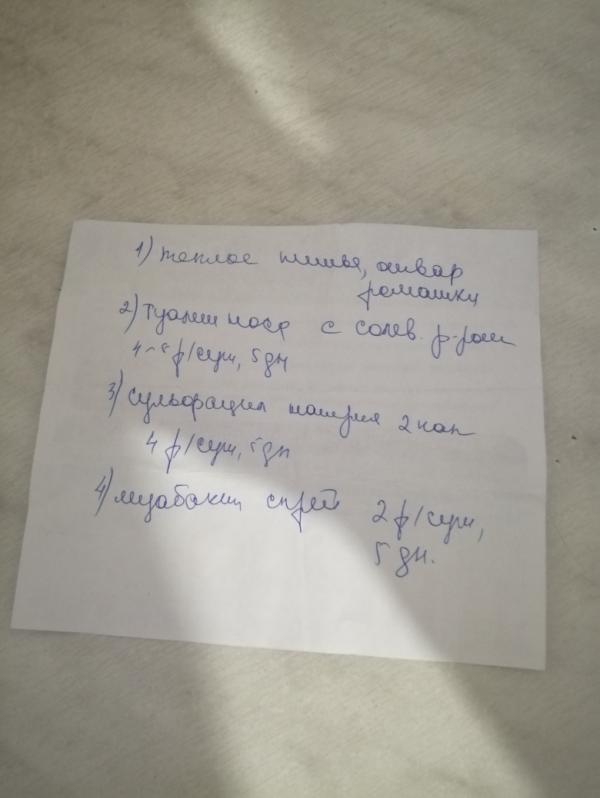 1) теплое питье, отвар
ромашки
2) туалет носа с солев. р-ром
4-5 р/сут, 5 дн
3) сульфацил натрия 2 кап
4 р/сут, 5 дн
4) спрей 2 р/сут,
5 дн.